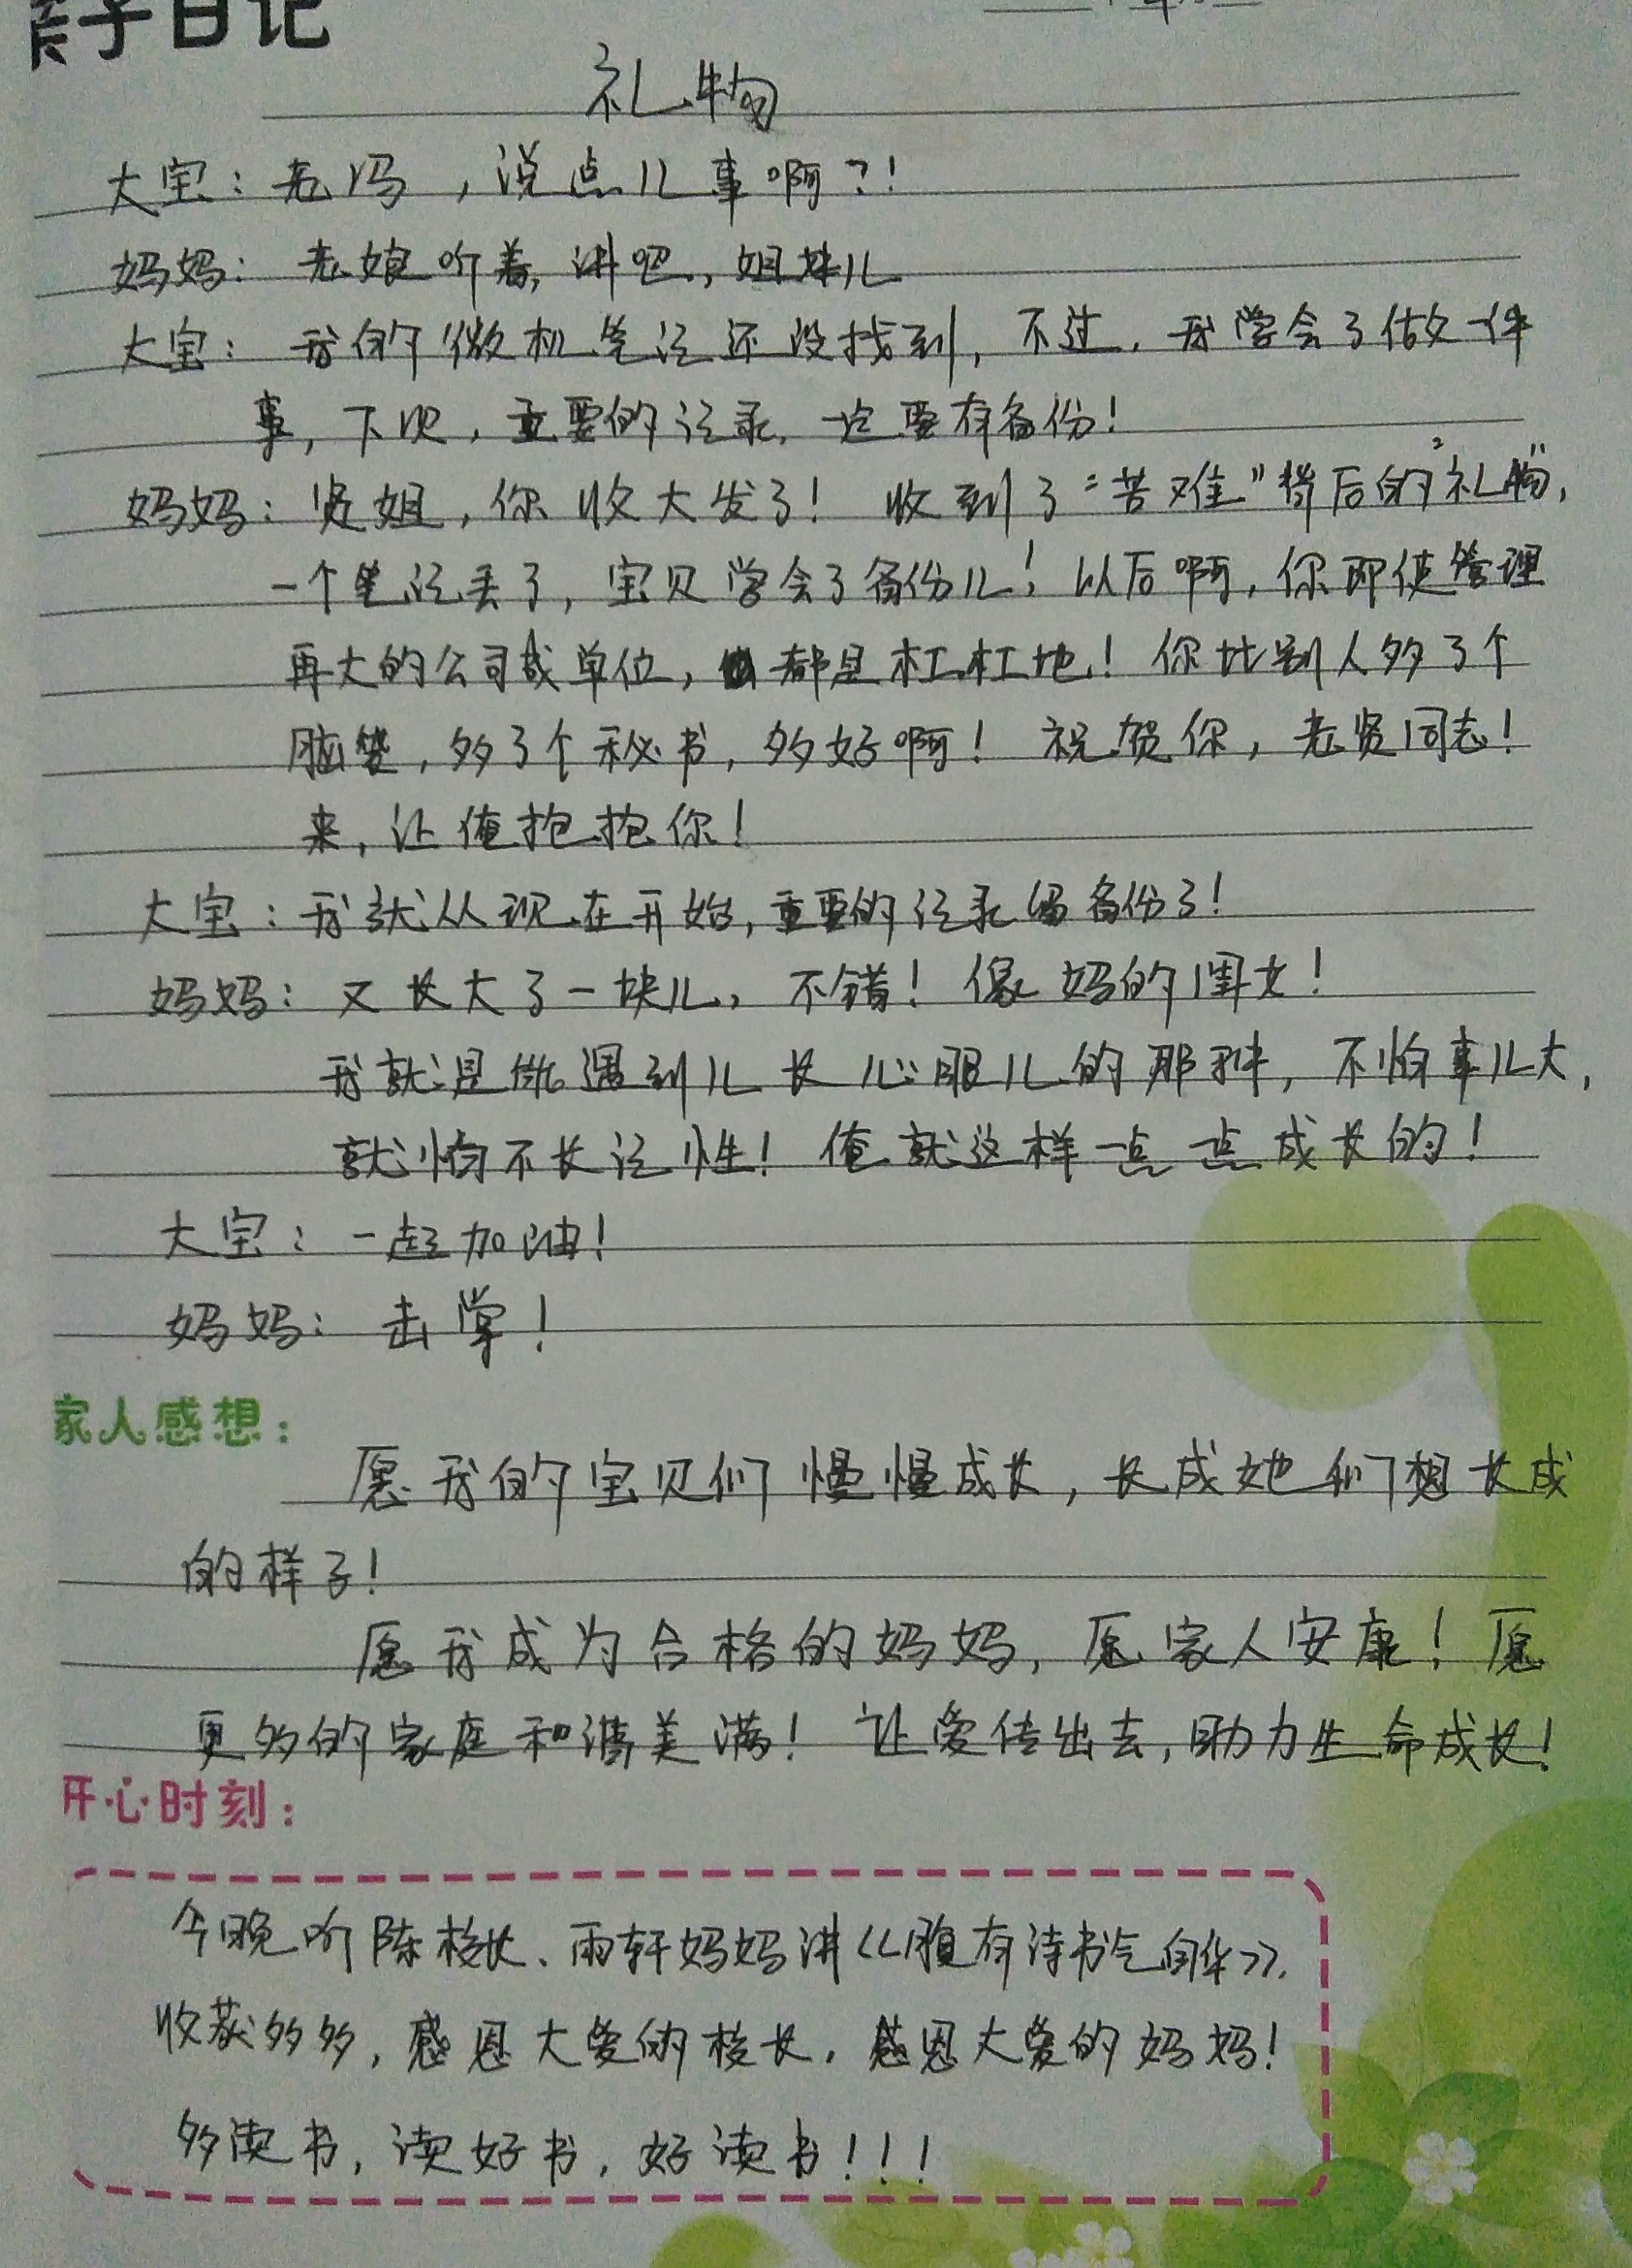 亲子日记
礼物
大宝：老妈，说点儿事啊？！
妈妈：老娘听着，讲吧，姐妹儿
大宝：我的微机笔记还没找到，不过，我学会了做一件
事，下次，重要的记录，一定要有备份！
妈妈：贤姐，你收大发了！收到了“苦难”背后的“礼物”，
一个笔记丢了，宝贝学会了备份儿！以后啊，你即使管理
再大的公司或单位，都是杠杠地！你比别人多了个
脑袋，多了个秘书，多好啊！祝贺你，老贤同志！
来，让俺抱抱你！
大宝：我就从现在开始，重要的记录留备份了！
妈妈：又长大了一块儿，不错！像妈的闺女！
我就是能遇到儿长心眼儿的那种，不怕事儿大，
就怕不长记性！俺就这样一点一点成长的！
大宝：一起加油！
妈妈：击掌！
家人感想：
愿我的宝贝们慢慢成长，长成她们想长成
的样子！
愿我成为合格的妈妈，愿家人安康！愿
更多的家庭和满美满！让爱传出去，助力生命成长！
开心时刻：
今晚听陈校长、雨轩妈妈讲《腹有诗书气自华》，
收获多多，感恩大爱的校长，感恩大爱的妈妈！
多读书，读好书，好读书！！！